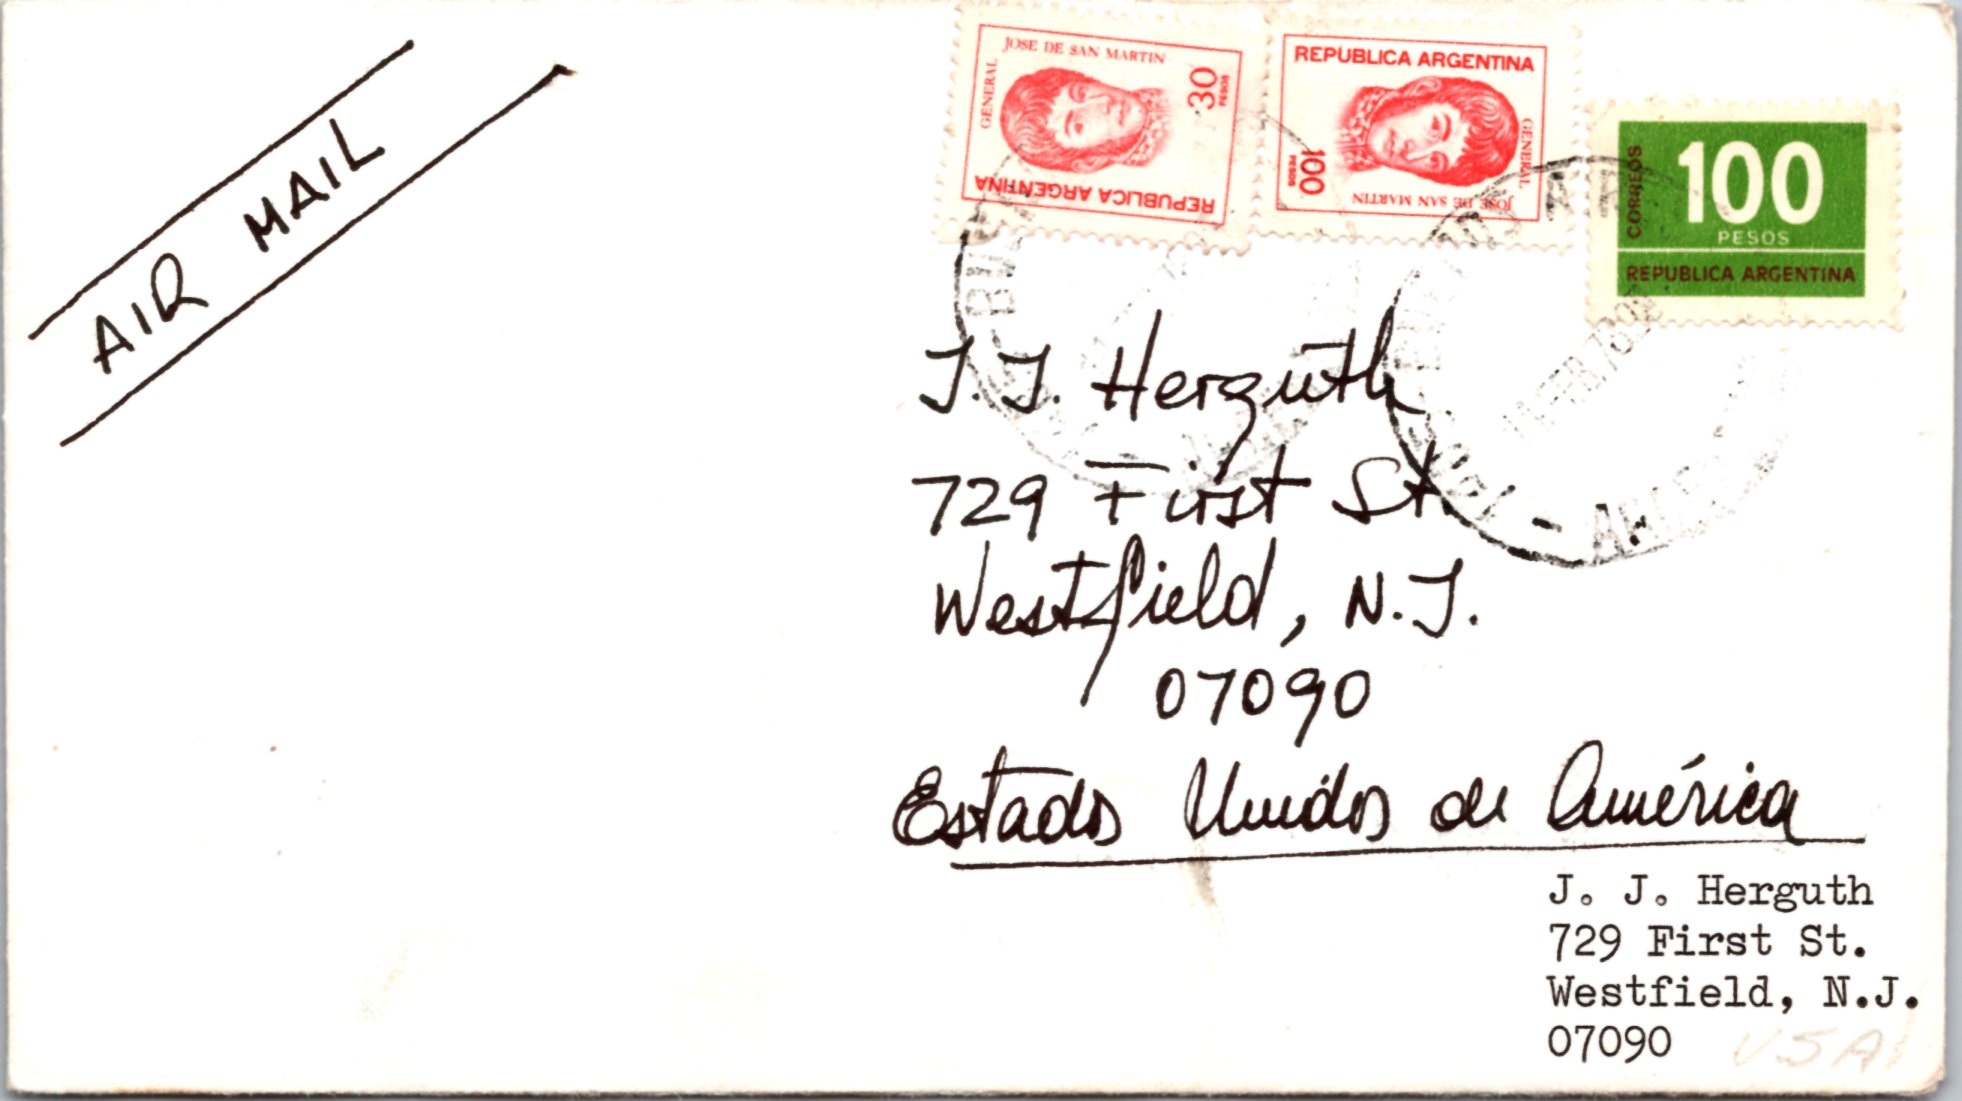 AIR MAIL
JOSE DE SAN MARTIN
GENERAL
30
PESOS
REPUBLICA ARGENTINA
REPUBLICA ARGENTINA
GENERAL
JOSE DE SAN MARTIN
100
PESOS
CORREOS
100
PESOS
REPUBLICA ARGENTINA
J. J. Herguth
729 First St.
Westfield, N.J.
07090
Estados Unidos de América
J. J. Herguth
729 First St.
Westfield, N.J.
07090
USA